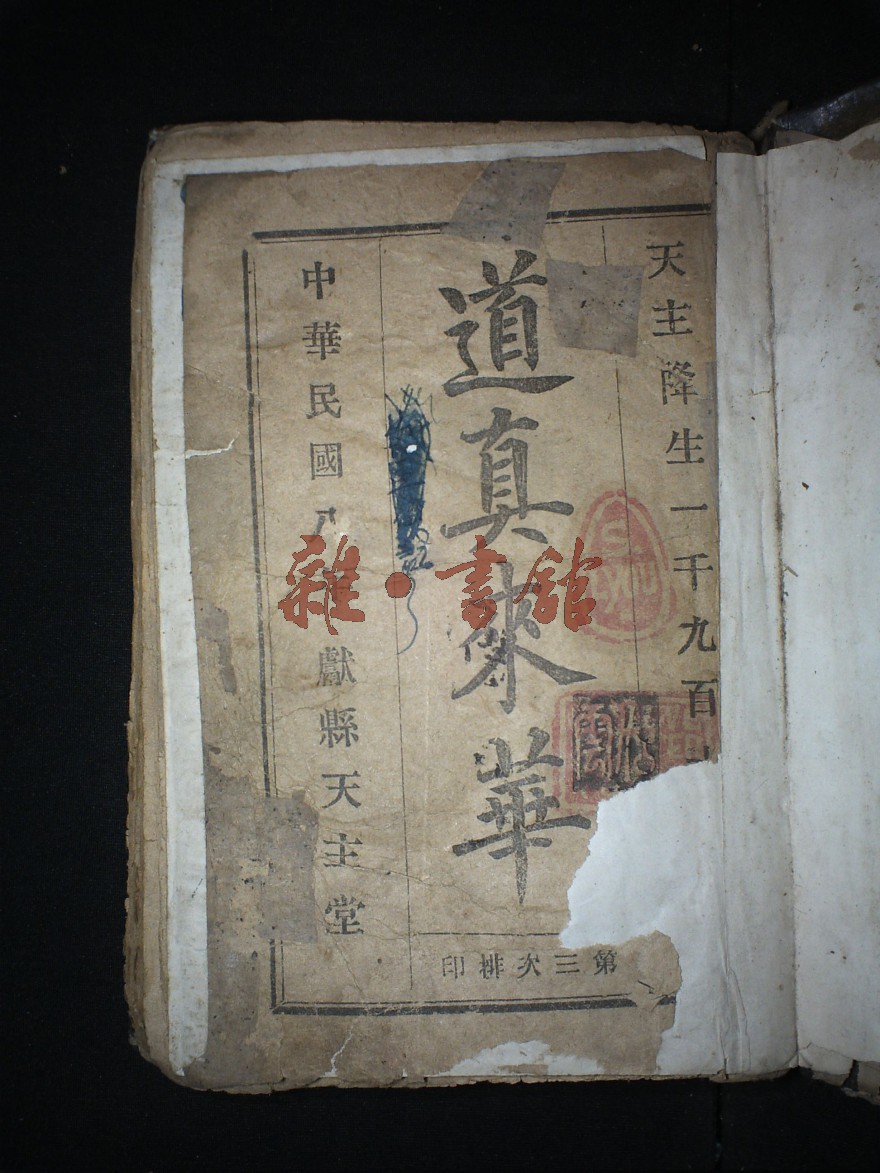 天主降生一千九百
道真來華
中華民國八
獻縣天主堂
第三次排印
雜·書館